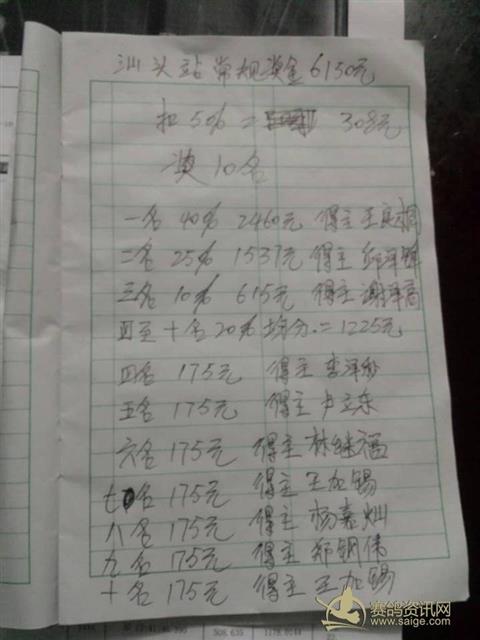 汕头站常规奖金6150元
扣5%= 308元
奖10名
一名 40% 2460元 得主 王
二名 25% 1537元 得主 邱泽
三名 10% 615元 得主 谢泽高
四至十名20%均分.=1225元
四名 175元 得主 李泽
五名 175元 得主 卢立东
六名 175元 得主 林继福
七名 175元 得主 王加锡
八名 175元 得主 杨嘉灿
九名 175元 得主 郑钢伟
十名 175元 得主 王加锡
赛鸽资讯网
www.saige.com